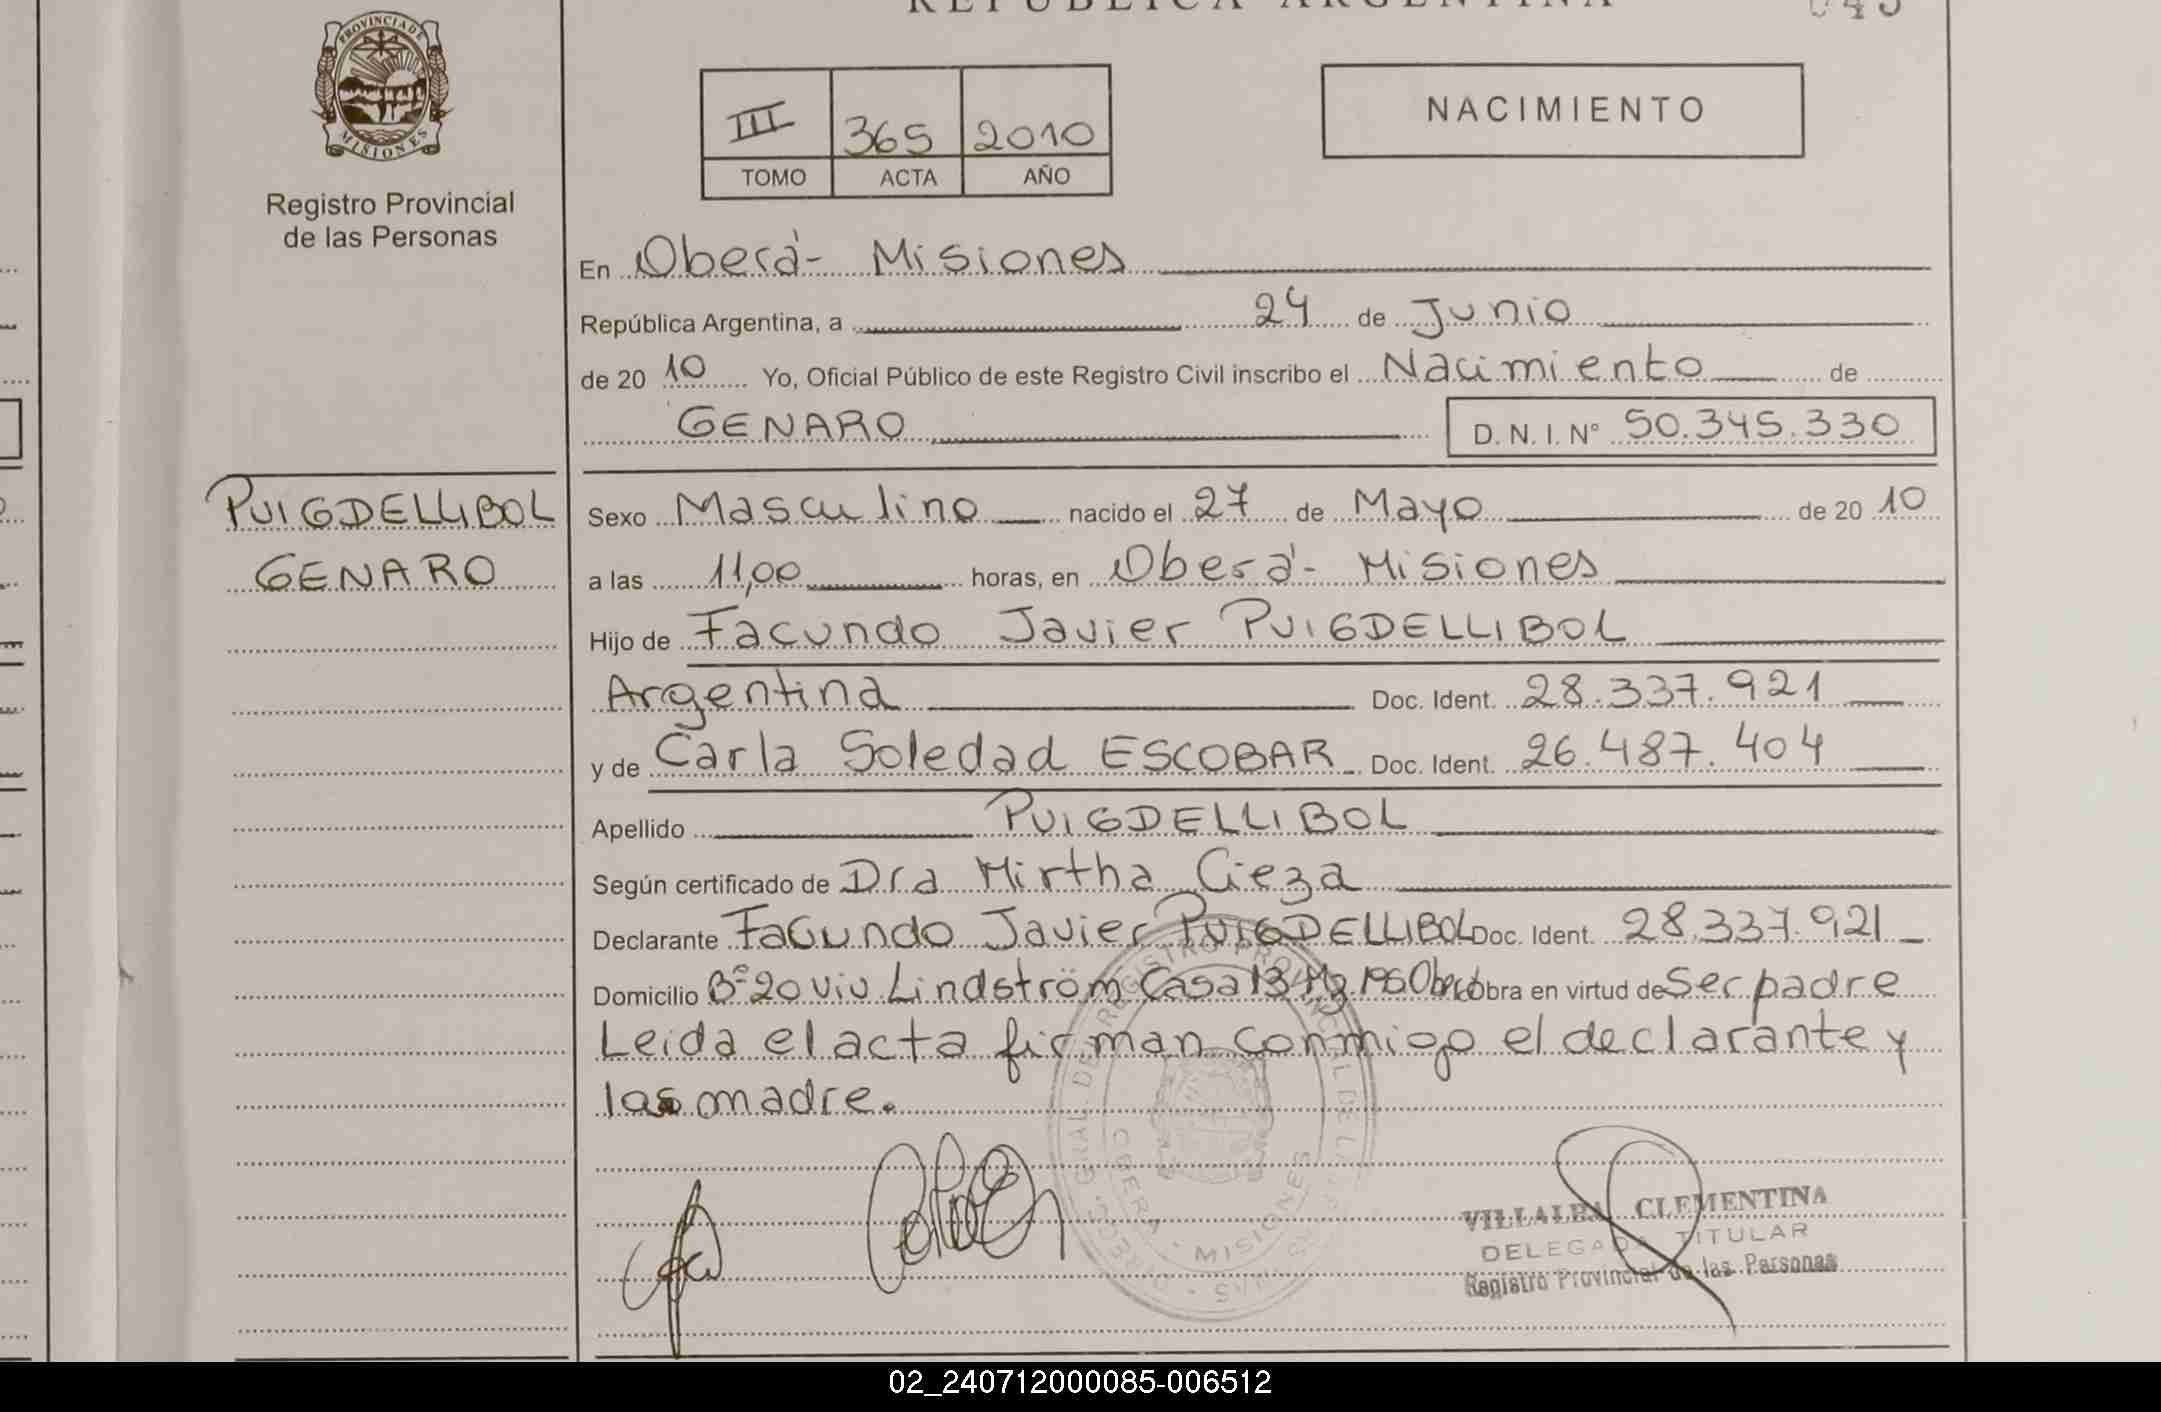 REPUBLICA ARGENTINA
PROVINCIA DE
MISIONES
Registro Provincial
de las Personas
III 365 2010
TOMO ACTA AÑO
NACIMIENTO
En Oberá - Misiones
República Argentina, a 24 de Junio
de 20 10 Yo, Oficial Público de este Registro Civil inscribo el Nacimiento de
GENARO D. N. I. N° 50.345.330
PUIGDELLIBOL
GENARO
Sexo Masculino nacido el 27 de Mayo de 20 10
a las 11,00 horas, en Oberá - Misiones
Hijo de Facundo Javier PUIGDELLIBOL
Argentina Doc. Ident. 28.337.921
y de Carla Soledad ESCOBAR Doc. Ident. 26.487.404
Apellido PUIGDELLIBOL
Según certificado de Dra Mirtha Cieza
Declarante Facundo Javier PUIGDELLIBOL Doc. Ident. 28.337.921
Domicilio B° 20 viv Lindström Casa 13 Mz 196 Oberá Obra en virtud de Ser padre
Leida el acta firman conmigo el declarante y
la madre.
OBERA - MISIONES
VILLALBA CLEMENTINA
DELEGADA TITULAR
Registro Provincial de las Personas
02_240712000085-006512